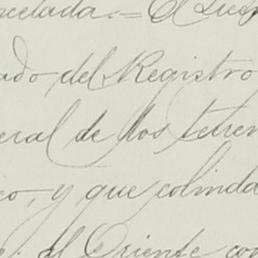 ncelada.= El Juez
ado del Registro
eral de los terren
co, y que colinda
e: al Oriente con